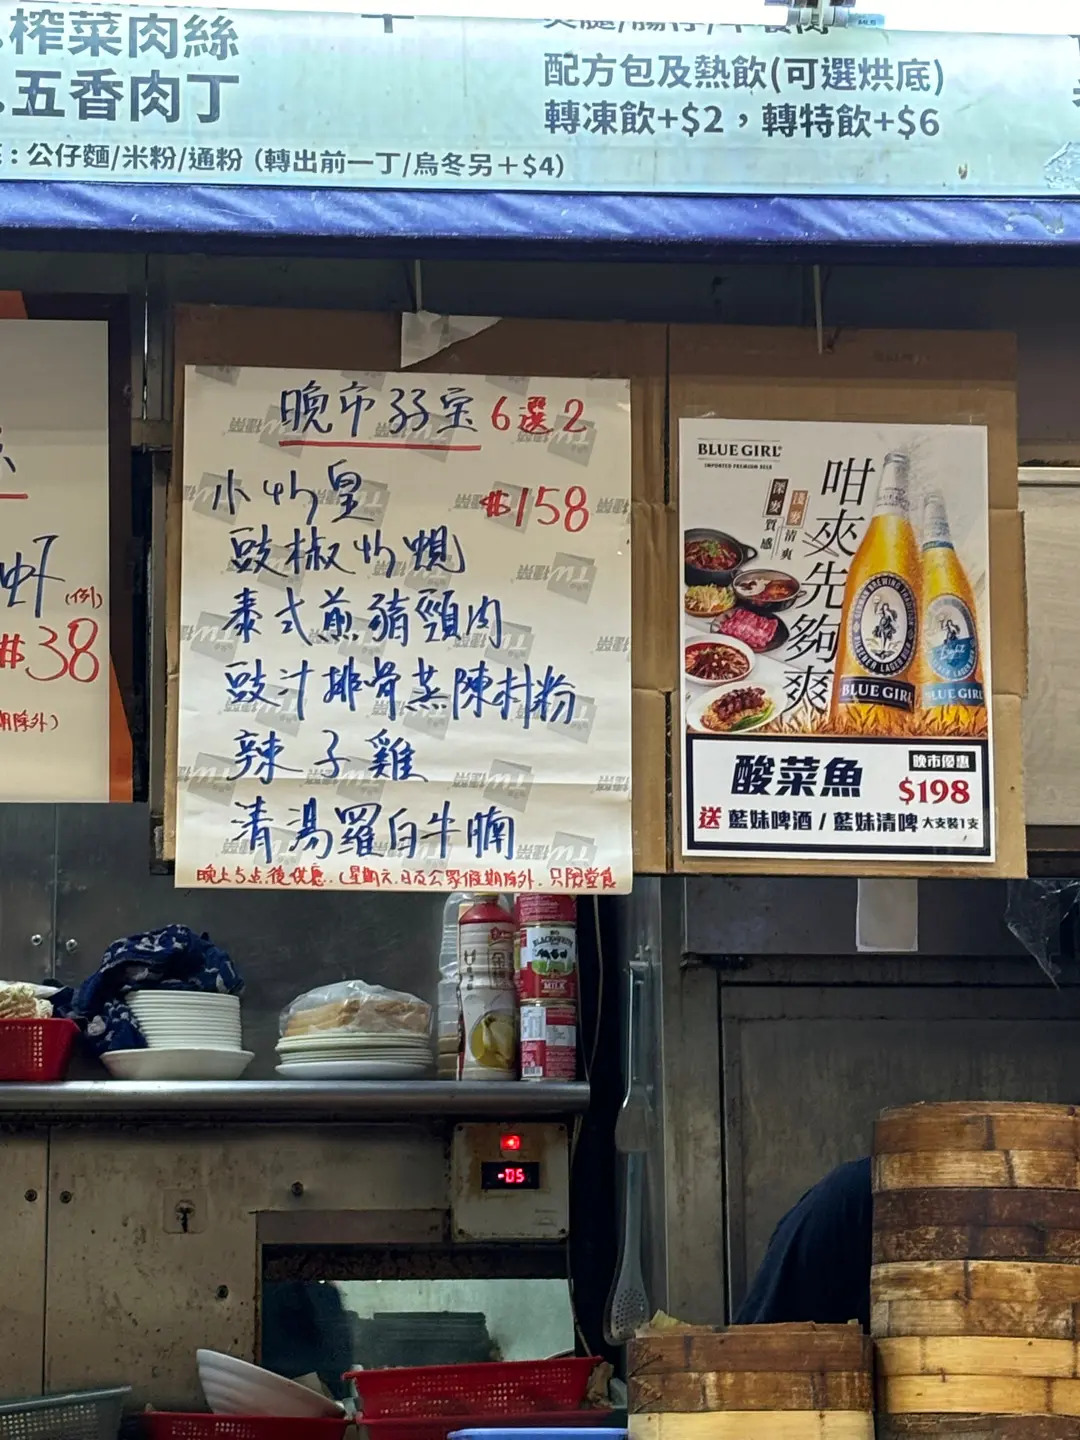 榨菜肉絲
五香肉丁
：公仔麵/米粉/通粉（轉出前一丁/烏冬另＋$4）
配方包及熱飲(可選烘底)
轉凍飲+$2，轉特飲+$6
蝦(例)
$38
期除外)
晚市孖宝 6選2
小炒皇 $158
豉椒炒蜆
泰式煎豬頸肉
豉汁排骨蒸陳村粉
辣子雞
清湯羅白牛腩
晚上5点後供應.(星期六.日及公眾假期除外.只限堂食
BLUE GIRL
IMPORTED PREMIUM BEER
咁夾先夠爽
深麥質感
淺麥清爽
BLUE GIRL
Light
BLUE GIRL
酸菜魚
晚市優惠
$198
送 藍妹啤酒 / 藍妹清啤 大支裝1支
BLACK&WHITE
MILK
-05